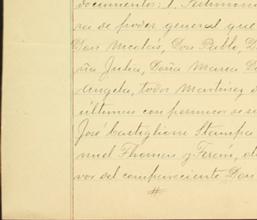 documentos: 1. Testimonio
ra de poder general que
Don Nicolás, Don Pablo, D
ña Julia, Doña María D
Angela, todos Martínez d
últimas con permiso
José Castiglione Stampa
nuel Thomas y Terán, 
vor del compareciente Don
#